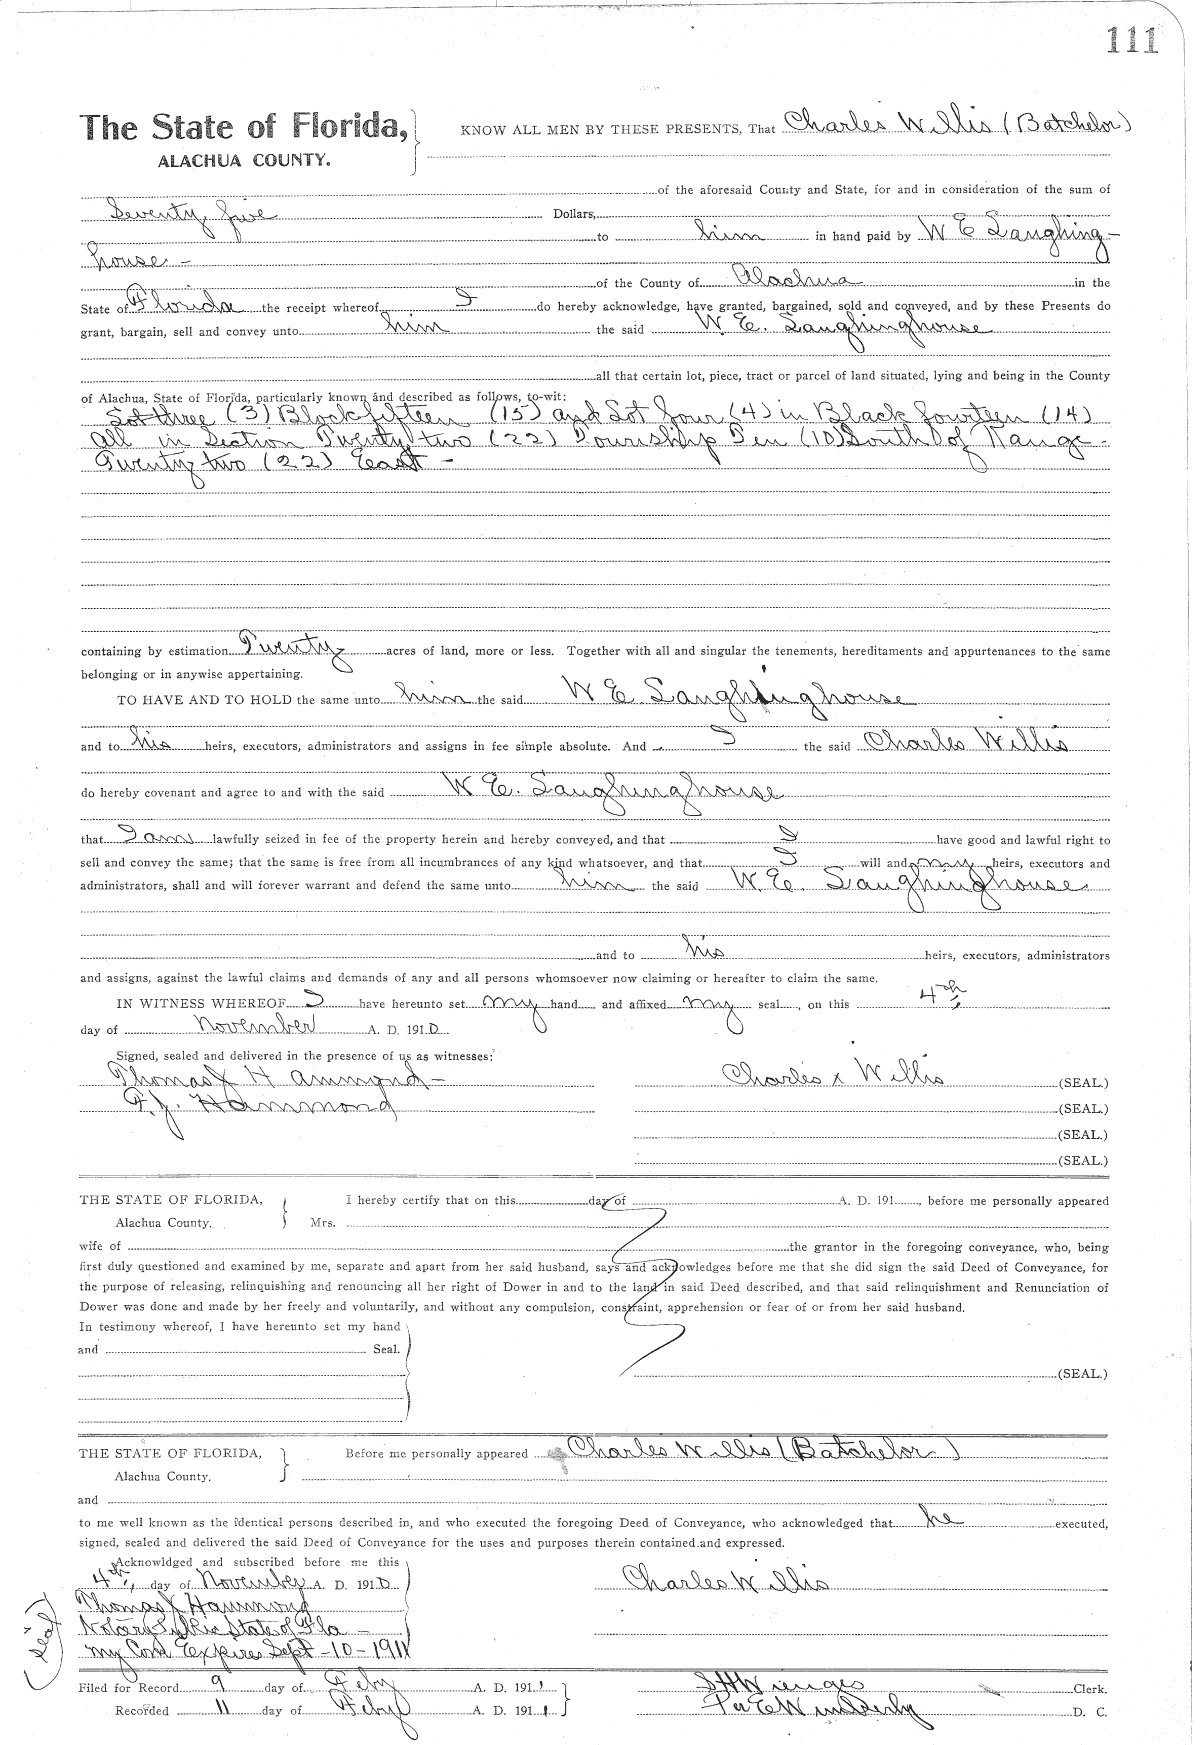 111
The State of Florida, KNOW ALL MEN BY THESE PRESENTS, That Charles Willis (Batchelor)
ALACHUA COUNTY.
of the aforesaid County and State, for and in consideration of the sum of
Seventy five Dollars,
to him in hand paid by W E Laughing-
house -
of the County of Alachua in the
State of Florida the receipt whereof I do hereby acknowledge, have granted, bargained, sold and conveyed, and by these Presents do
grant, bargain, sell and convey unto him the said W. E. Laughinghouse
all that certain lot, piece, tract or parcel of land situated, lying and being in the County
of Alachua, State of Florida, particularly known and described as follows, to-wit:
Lot three (3) Block fifteen (15) and Lot four (4) in Block fourteen (14)
all in Section Twenty two (22) Township Ten (10) South of Range -
Twenty two (22) East -
containing by estimation Twenty acres of land, more or less. Together with all and singular the tenements, hereditaments and appurtenances to the same
belonging or in anywise appertaining.
TO HAVE AND TO HOLD the same unto him the said W E Laughinghouse
and to his heirs, executors, administrators and assigns in fee simple absolute. And I the said Charles Willis
do hereby covenant and agree to and with the said W E. Laughinghouse
that I am lawfully seized in fee of the property herein and hereby conveyed, and that I have good and lawful right to
sell and convey the same; that the same is free from all incumbrances of any kind whatsoever, and that I will and my heirs, executors and
administrators, shall and will forever warrant and defend the same unto him the said W. E. Laughinghouse
and to his heirs, executors, administrators
and assigns, against the lawful claims and demands of any and all persons whomsoever now claiming or hereafter to claim the same.
IN WITNESS WHEREOF I have hereunto set my hand and affixed my seal, on this 4th,
day of November A. D. 1910
Signed, sealed and delivered in the presence of us as witnesses:
Thomas J Hammond - Charles x Willis (SEAL.)
F. J. Hammond (SEAL.)
(SEAL.)
(SEAL.)
THE STATE OF FLORIDA, I hereby certify that on this day of A. D. 191 , before me personally appeared
Alachua County. Mrs.
wife of the grantor in the foregoing conveyance, who, being
first duly questioned and examined by me, separate and apart from her said husband, says and acknowledges before me that she did sign the said Deed of Conveyance, for
the purpose of releasing, relinquishing and renouncing all her right of Dower in and to the land in said Deed described, and that said relinquishment and Renunciation of
Dower was done and made by her freely and voluntarily, and without any compulsion, constraint, apprehension or fear of or from her said husband.
In testimony whereof, I have hereunto set my hand
and Seal.
(SEAL.)
THE STATE OF FLORIDA, Before me personally appeared Charles Willis (Batchelor)
Alachua County.
and
to me well known as the identical persons described in, and who executed the foregoing Deed of Conveyance, who acknowledged that he executed,
signed, sealed and delivered the said Deed of Conveyance for the uses and purposes therein contained and expressed.
Acknowldged and subscribed before me this
4th, day of November A. D. 1910 Charles Willis
Thomas J Hammond
Notary Public State of Fla -
my Com Expires Sept - 10 - 1911
(seal)
Filed for Record 9 day of Feby A. D. 1911 S H Wienges Clerk.
Recorded 11 day of Feby A. D. 1911 Per E Wimberly D. C.